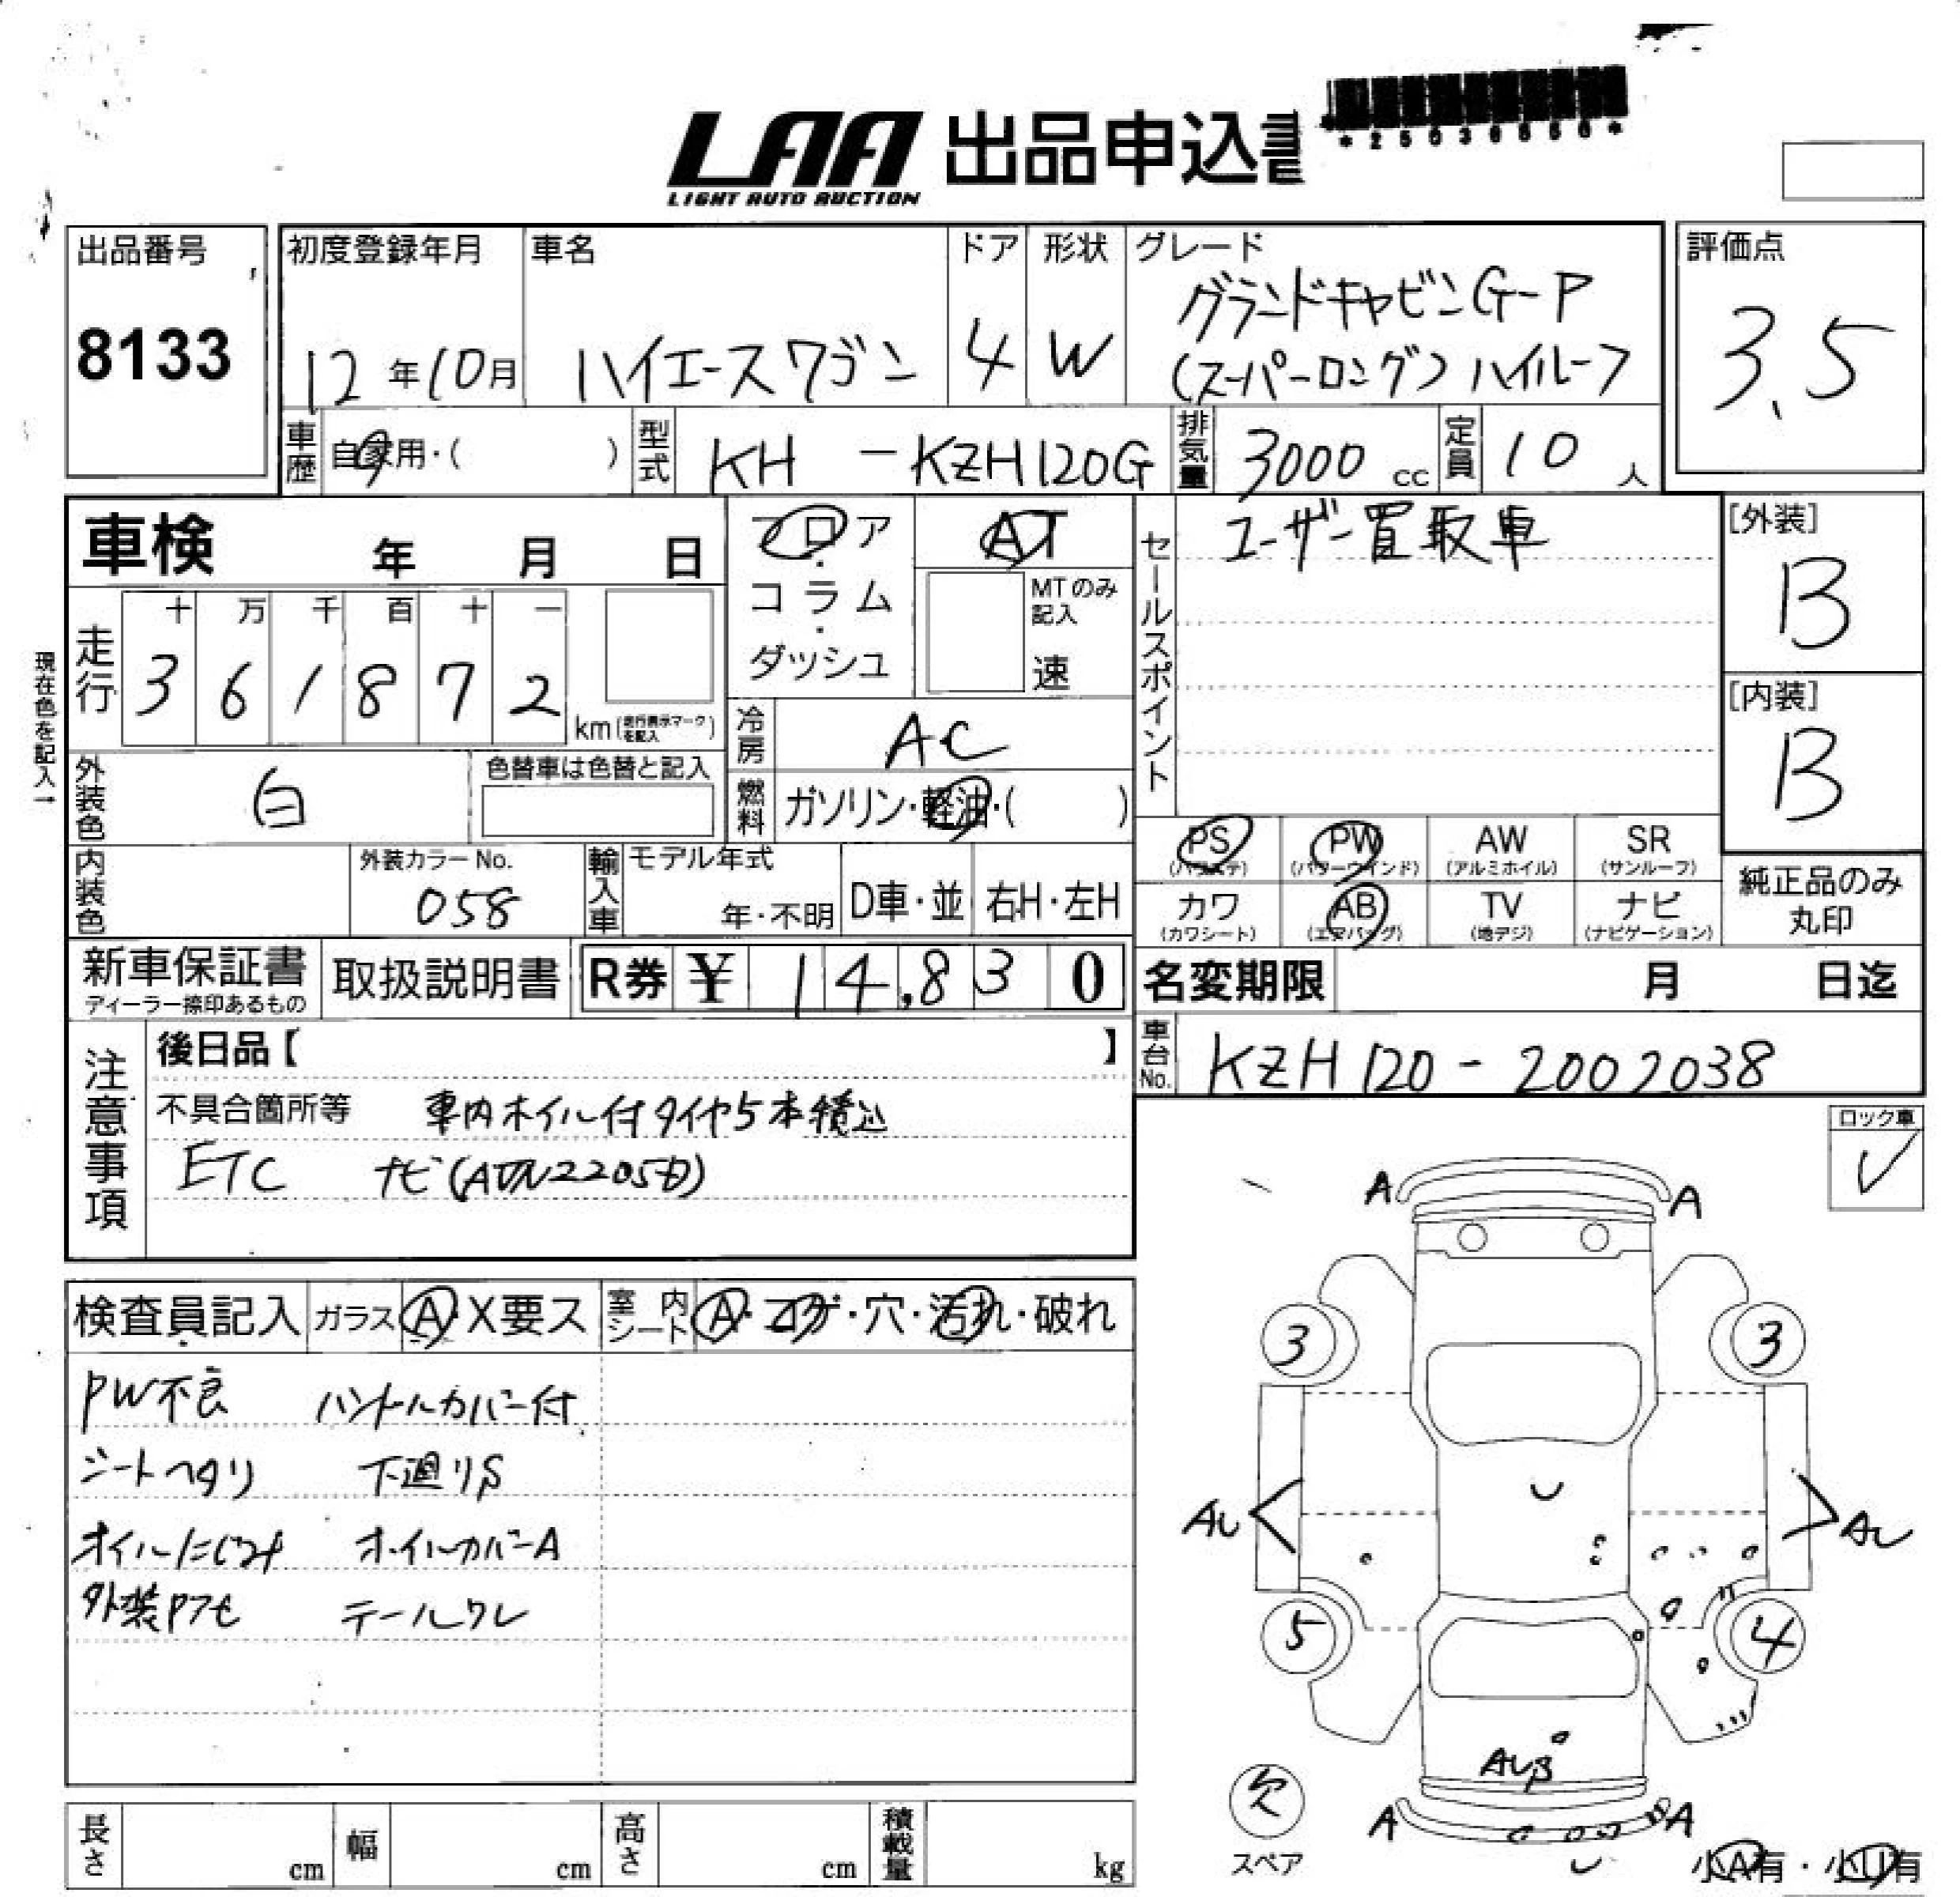 LAA 出品申込書
LIGHT AUTO AUCTION
出品番号
8133
初度登録年月
12年10月
車名
ハイエースワゴン
ドア
4
形状
W
グレード
グランドキャビンG-P
(スーパーロング) ハイルーフ
評価点
3.5
車歴
自家用・( )
型式
KH -KZH120G
排気量
3000 cc
定員
10 人
車検 年 月 日
フロア・コラム・ダッシュ
AT
MTのみ記入
速
セールスポイント
ユーザー買取車
[外装]
B
[内装]
B
現在色を記入→
走行
十 万 千 百 十 一
3 6 1 8 7 2
km (走行表示マークを記入)
冷房
AC
燃料
ガソリン・軽油・( )
外装色
白
色替車は色替と記入
内装色
外装カラーNo.
058
輸入車
モデル年式
年・不明
D車・並
右H・左H
PS PW AW SR
(パワステ) (パワーウインド) (アルミホイル) (サンルーフ)
カワ AB TV ナビ
(カワシート) (エアバッグ) (地デジ) (ナビゲーション)
純正品のみ
丸印
新車保証書
ディーラー捺印あるもの
取扱説明書
R券 ¥ 14,830
名変期限 月 日迄
車台No.
KZH120-2002038
注意事項
後日品【 】
不具合箇所等 車内ホイル付タイヤ5本積込
ETC ナビ
ロック車
✓
検査員記入
ガラス A・X要ス
室内シート A・コゲ・穴・汚れ・破れ
PW不良 ハンドルカバー付
シートヘタリ 下廻りS
オイルにじみ オイルカバーA
外装Pアセ テールワレ
A A
3 3
AU AU
5 4
A A
欠
スペア
小A有・小U有
長さ cm
幅 cm
高さ cm
積載量 kg